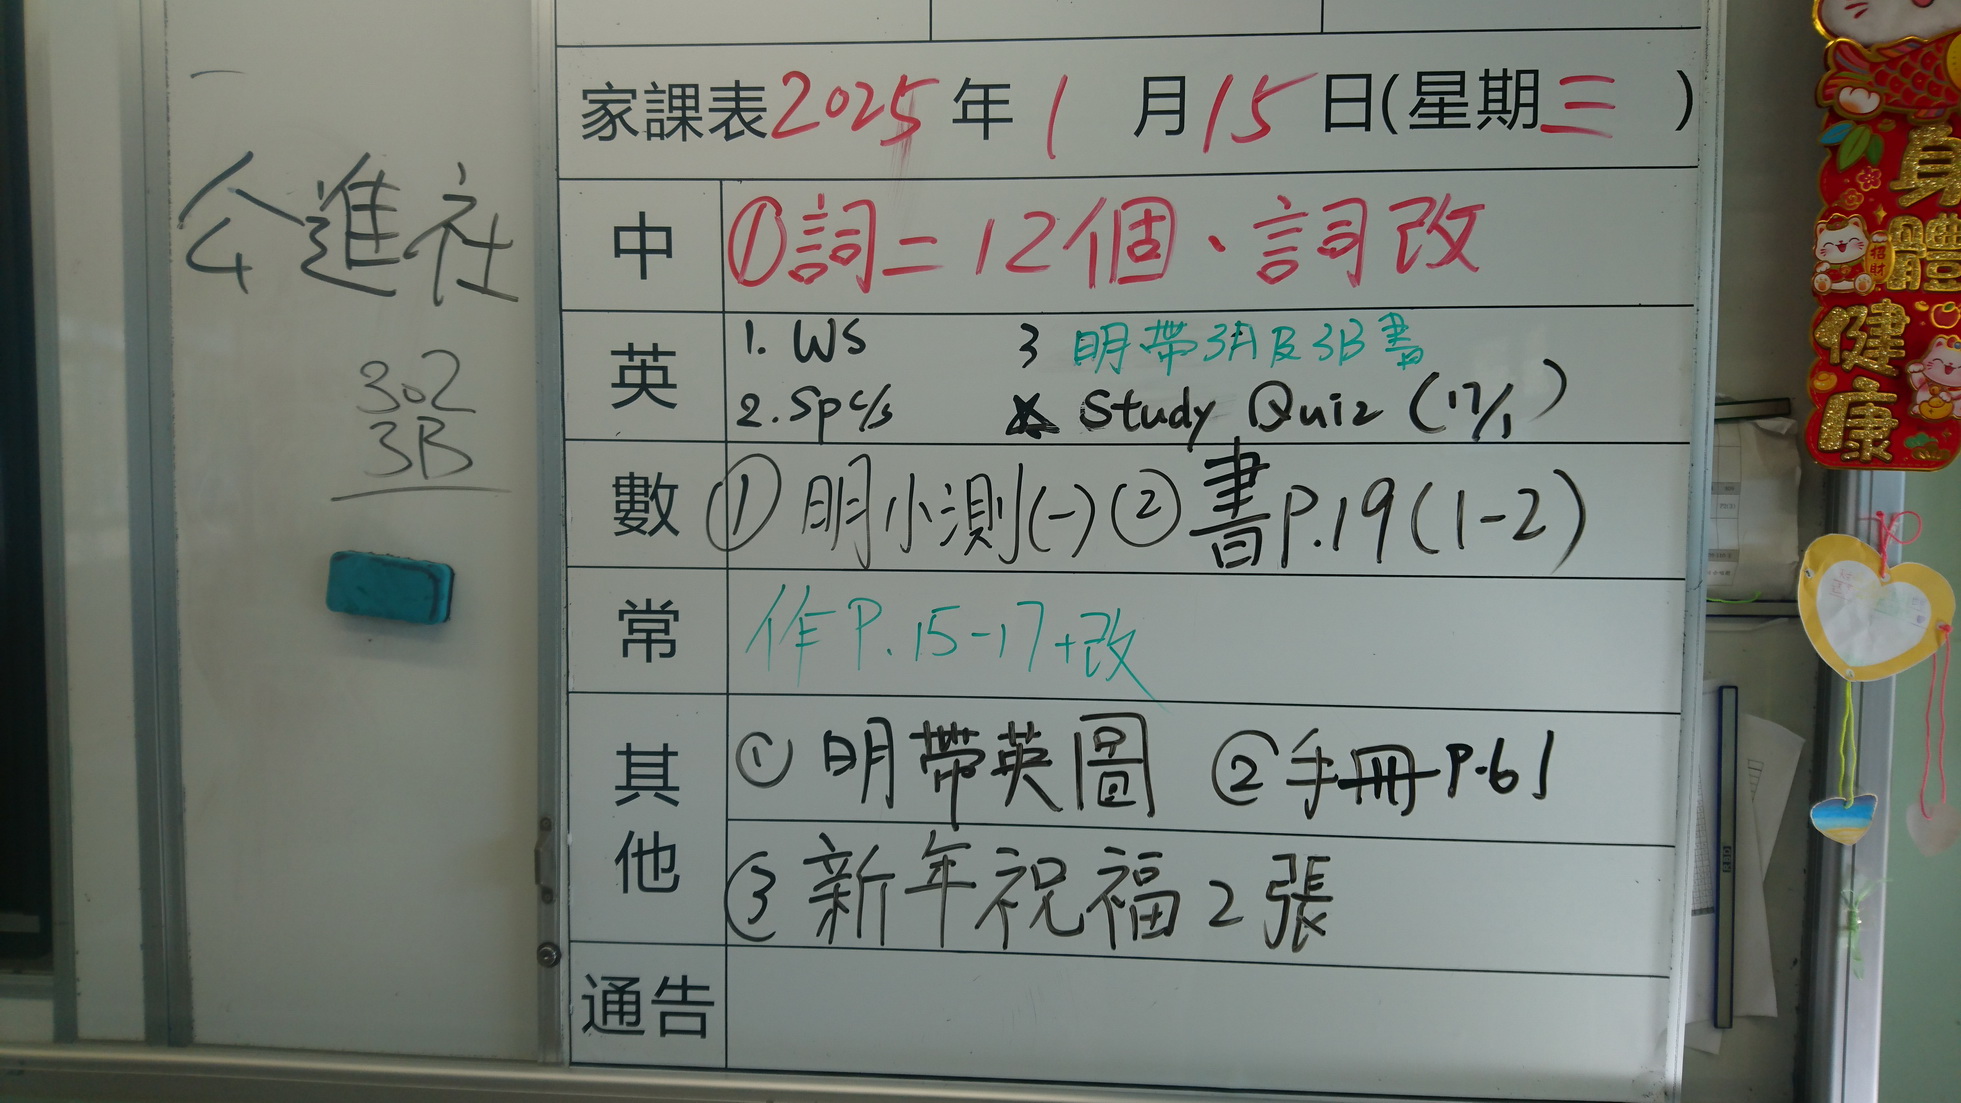 公進社
302
3B
家課表2025年1月15日(星期三)
中 ①詞二12個、詞改
英 1. WS 3 明帶3A及3B書
2. Sp c/s ★ Study Quiz (17/1)
數 ① 明小測(一) ② 書P.19(1-2)
常 作P.15-17+改
其他 ① 明帶英圖 ② 手冊P.61
③ 新年祝福2張
通告
身體健康
招財